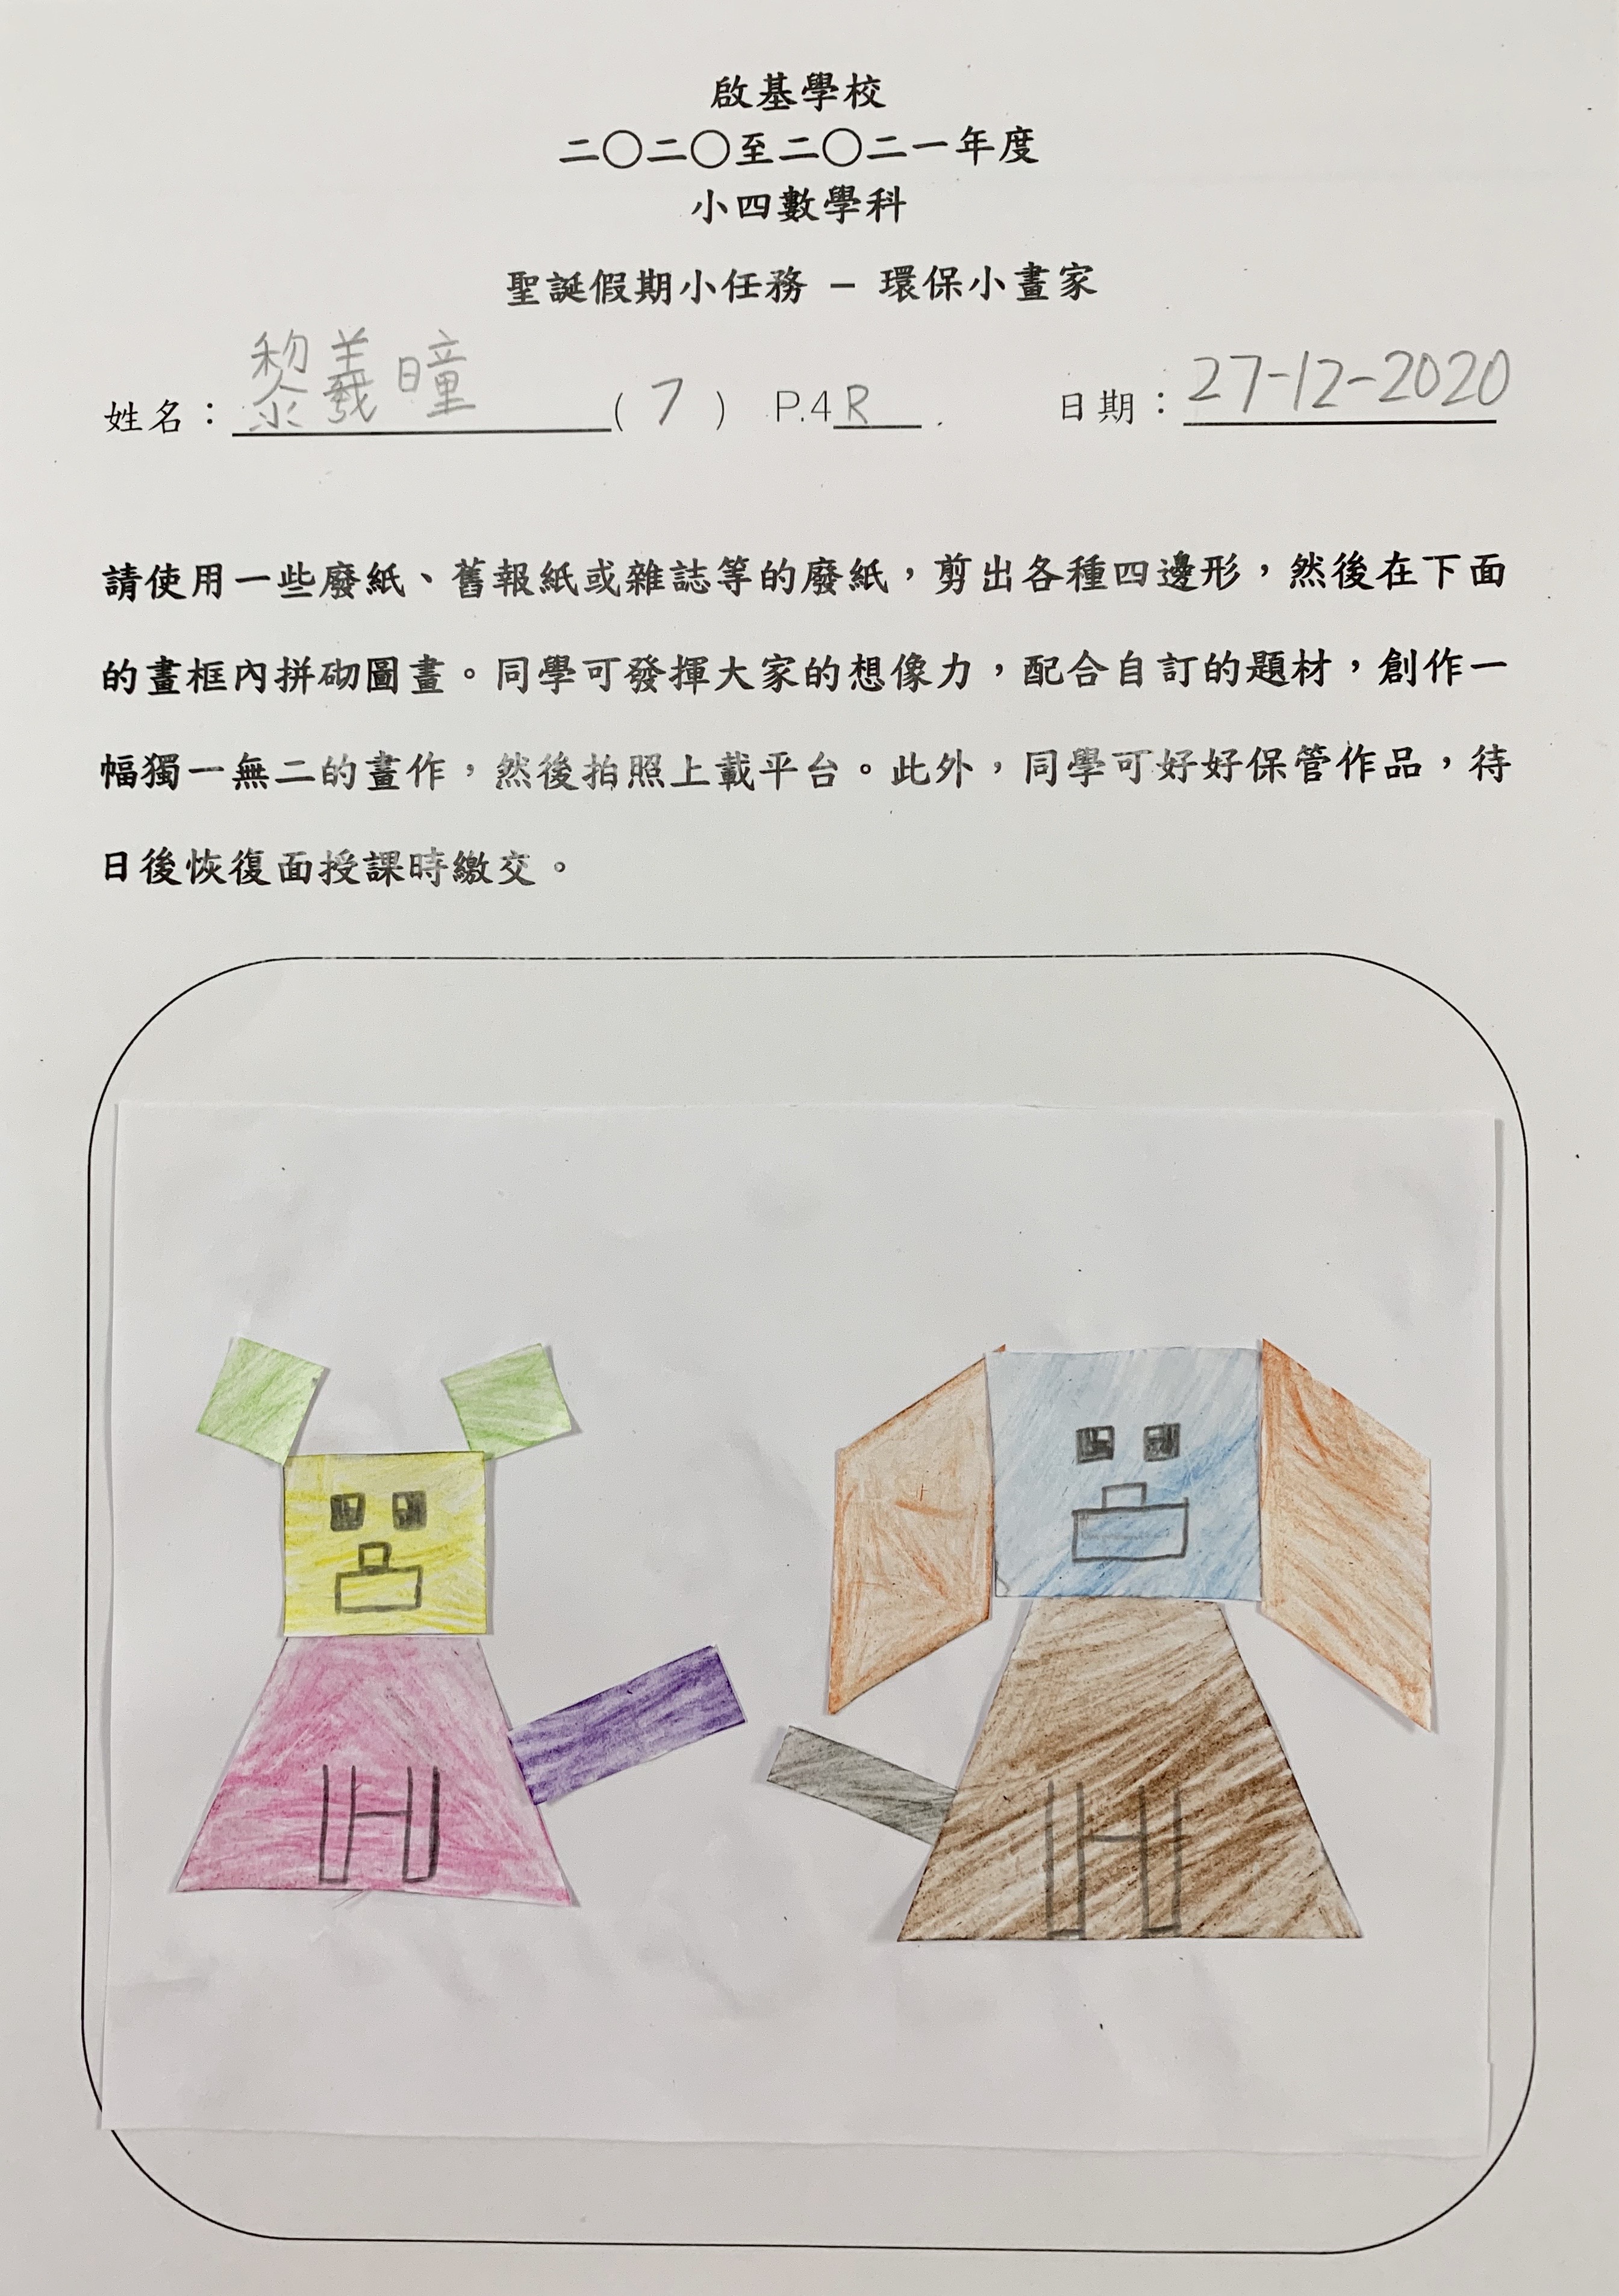 啟基學校
二〇二〇至二〇二一年度
小四數學科
聖誕假期小任務 – 環保小畫家
姓名：黎羲曈 ( 7 ) P.4R . 日期：27-12-2020
請使用一些廢紙、舊報紙或雜誌等的廢紙，剪出各種四邊形，然後在下面
的畫框內拼砌圖畫。同學可發揮大家的想像力，配合自訂的題材，創作一
幅獨一無二的畫作，然後拍照上載平台。此外，同學可好好保管作品，待
日後恢復面授課時繳交。